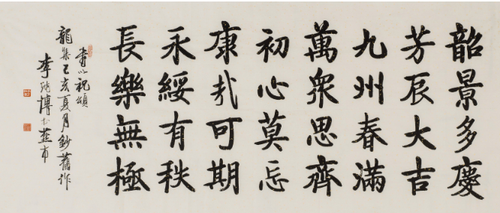 韶景多慶
芳辰大吉
九州春滿
萬眾思齊
初心莫忘
康我可期
永綏有秩
長樂無極
書以祝頌
龍集己亥夏月鈔舊作
李 博